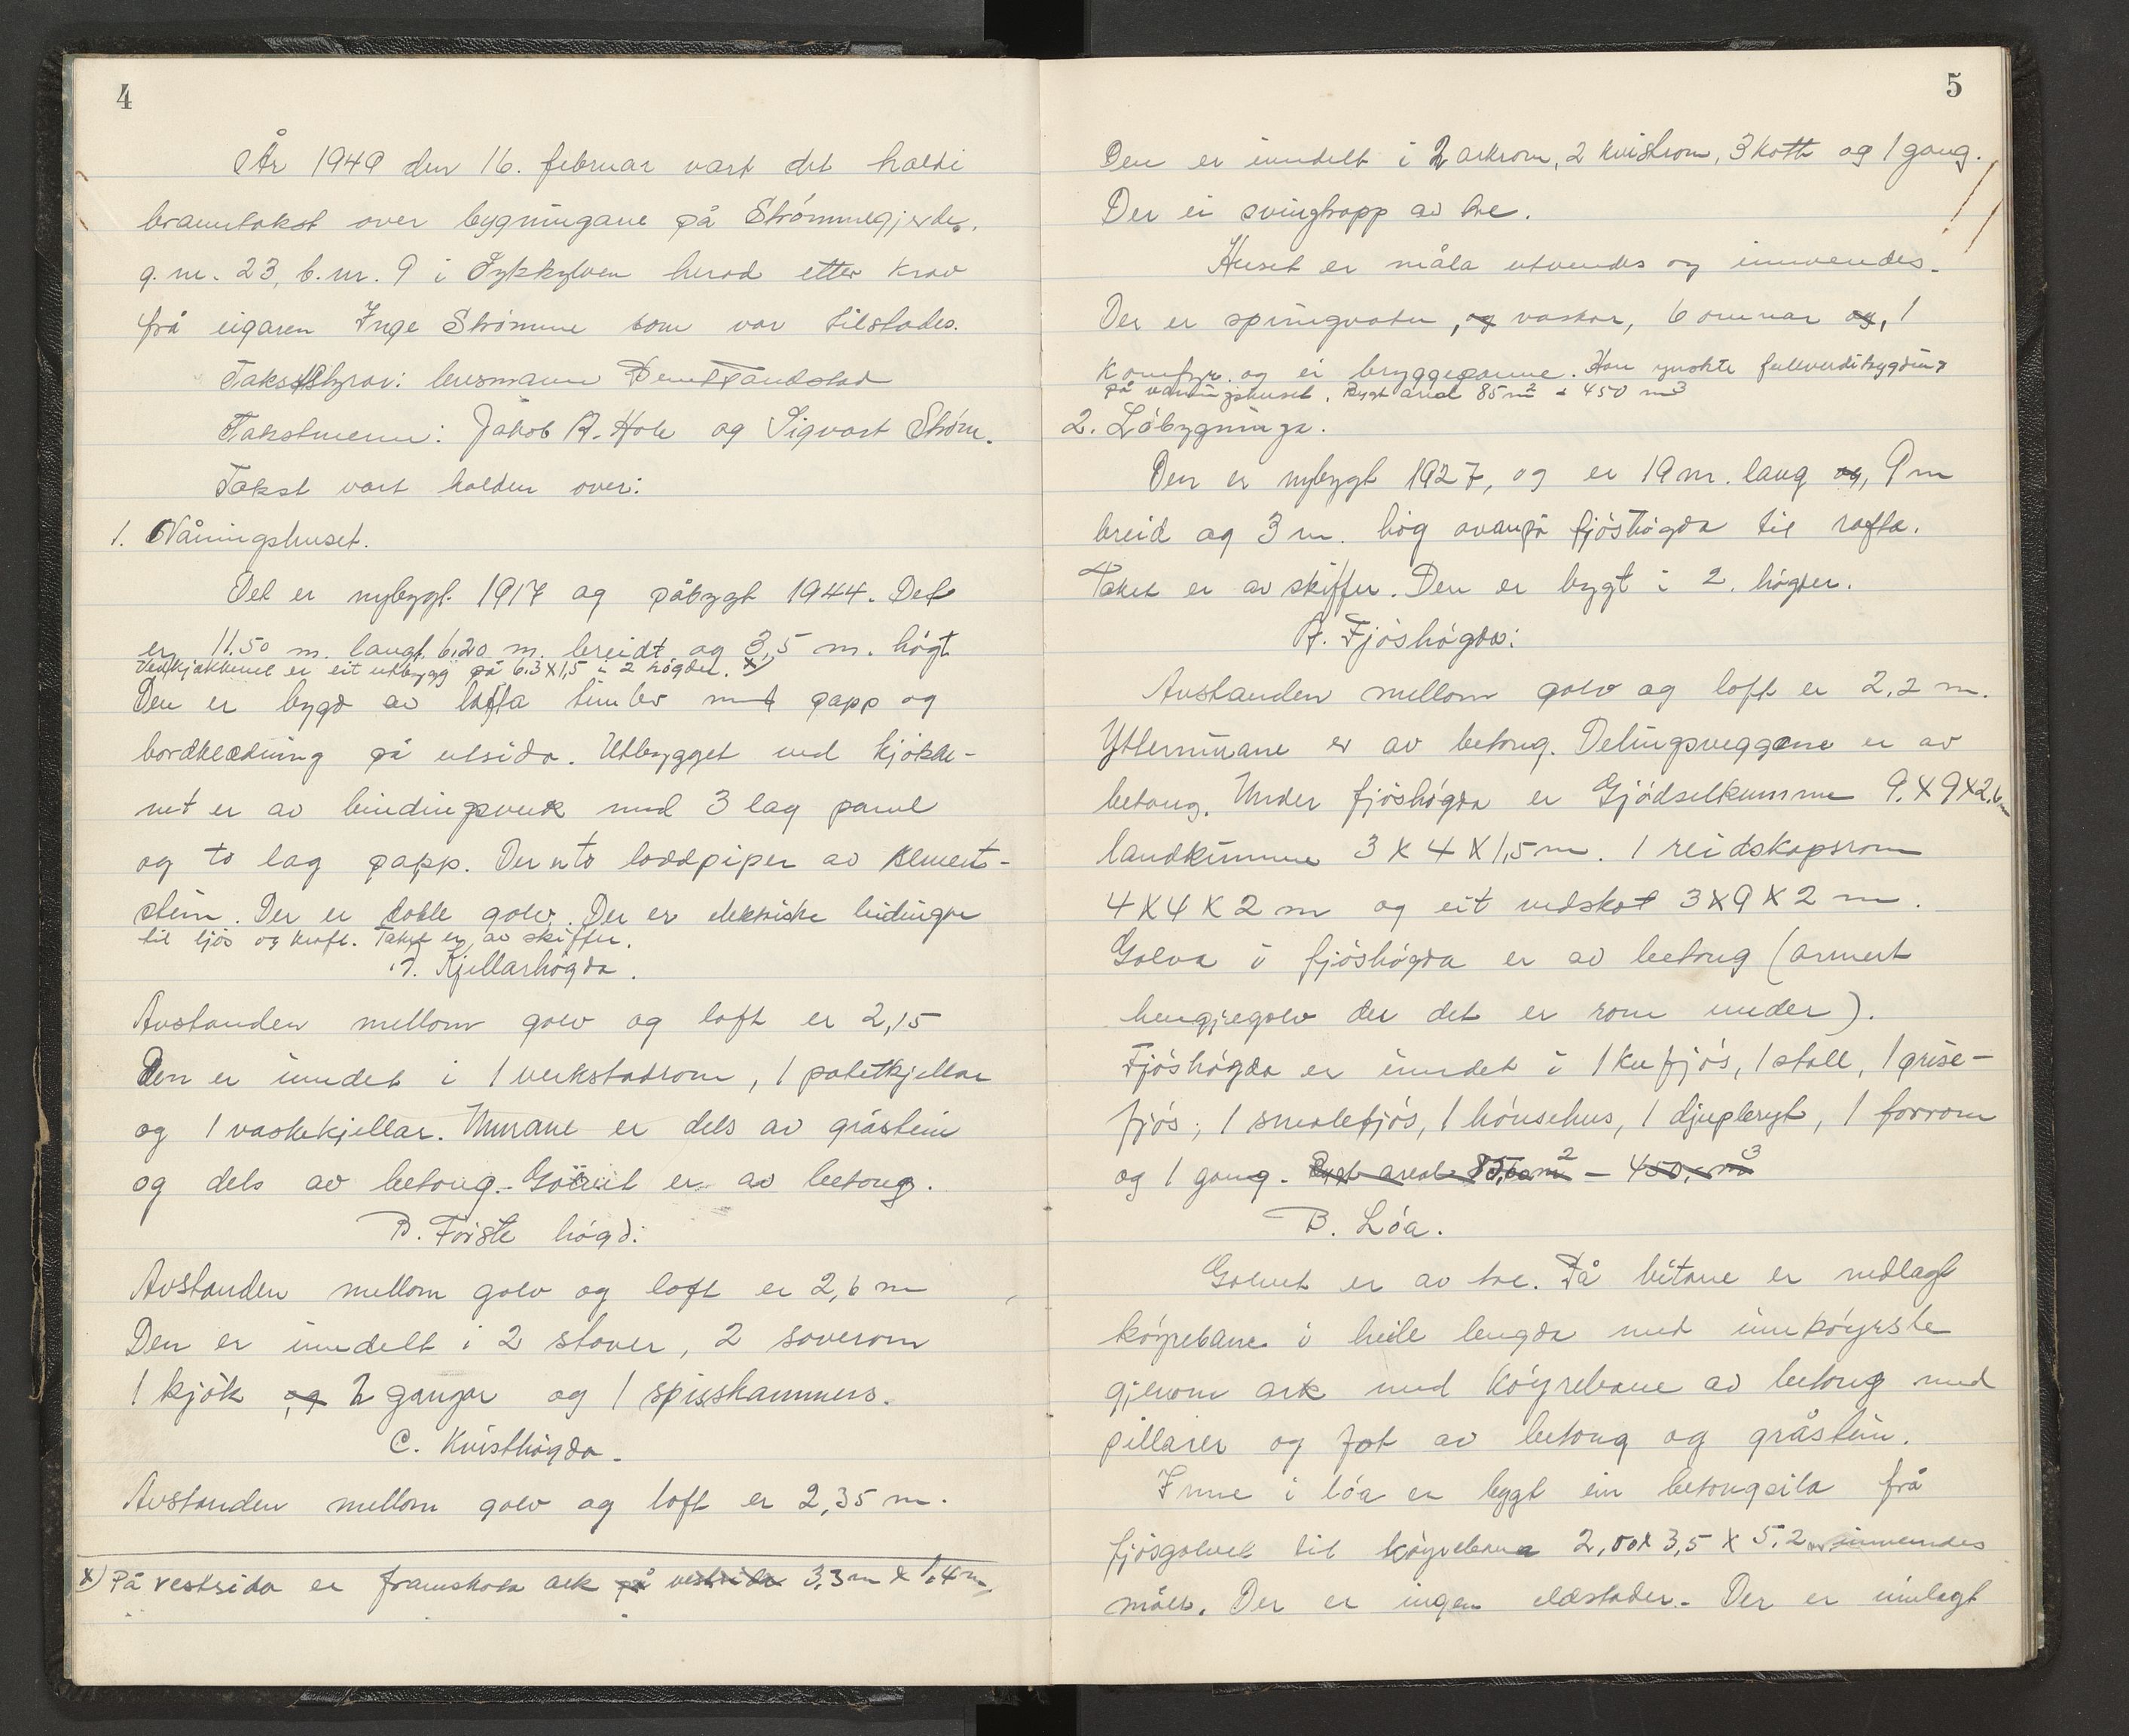 4
År 1949 den 16. februar vart det haldi
branntakst over bygningane på Strömmegjerde.
g.nr. 23, b.nr. 9 i Sykkylven herad etter krav
frå eigaren Inge Strömme som var tilstades.
Takststyrar: lensmann Bernt Tandstad
Takstmenn: Jakob A. Hole og Sigvart Ström.
Takst vart halden over:
1. Våningshuset.
Det er nybygt 1917 og påbygt 1944. Det
er 11.50 m. langt, 6,20 m. breidt og 3,5 m. högt
Ved kjökkenet er eit utbygg på 6.3 X 1,5 i 2 högder. x)
Den er bygd av lafta timber med papp og
bordklædning på utsida. Utbygget ved kjökke-
net er av bindingsverk med 3 lag panel
og to lag papp. Der er to loddpiper av sement-
stein. Der er doble golv. Der er elektriske leidingar
til ljos og kraft. Taket er av skiffer.
A. Kjellarhögda.
Avstanden mellom golv og loft er 2,15
Den er inndelt i 1 verkstadrom, 1 potetkjellar
og 1 vaskekjellar. Murane er dels av gråstein
og dels av betong. Golvet er av betong.
B. Förste högd:
Avstanden mellom golv og loft er 2,6 m
Den er inndelt i 2 stover, 2 soverom
1 kjök og 2 gangar og 1 spisskammers.
C. Kvisthögda.
Avstanden mellom golv og loft er 2,35 m.
x) På vestsida er framskota ark på vestsida 3,3 m x 1.4 m
5
Den er inndelt i 2 arkrom, 2 kvistrom, 3 kott og 1 gang.
Der ei svingtrapp av tre.
Huset er måla utvendes og innvendes.
Der er springvatn, og vaskar, 6 omnar og, 1
komfyr. og ei bryggepanne. Han ynskte fullverditrygding
på våningshuset. Bygt areal 85 m2 - 450 m3
2. Löbygninga.
Den er nybygt 1927, og er 19 m. lang og, 9 m
breid og 3 m. hög ovanpå fjöshögda til rafta.
Taket er av skiffer. Den er bygt i 2. högder.
A. Fjöshögda:
Avstanden mellom golv og loft er 2,2 m.
Yttermurane er av betong. Delingsveggene er av
betong. Under fjöshögda er Gjödselkumme 9. X 9 X 2,6 m
landkumme 3 X 4 X 1,5 m. 1 reidskapsrom
4 X 4 X 2 m og eit vedskot 3 X 9 X 2 m.
Golva i fjöshögda er av betong (armert
hengjegolv der det er rom under).
Fjöshögda er inndelt i 1 kufjös, 1 stall, 1 grise-
fjös, 1 smalefjös, 1 hönsehus, 1 djupleryt, 1 forrom
og 1 gang. Bygt areal 85,60 m2 - 450, m3
B. Löa.
Golvet er av tre. På bitane er nedlagt
köyrebane i heile lengda med innköyrsle
gjenom ark med köyrebane av betong med
pillarer og fot av betong og gråstein.
Inne i löa er bygt ein betongsilo frå
fjösgolvet til köyrebana 2,50 x 3,5 X 5,2 m innvendes
mål. Der er ingen eldstader. Der er innlagt